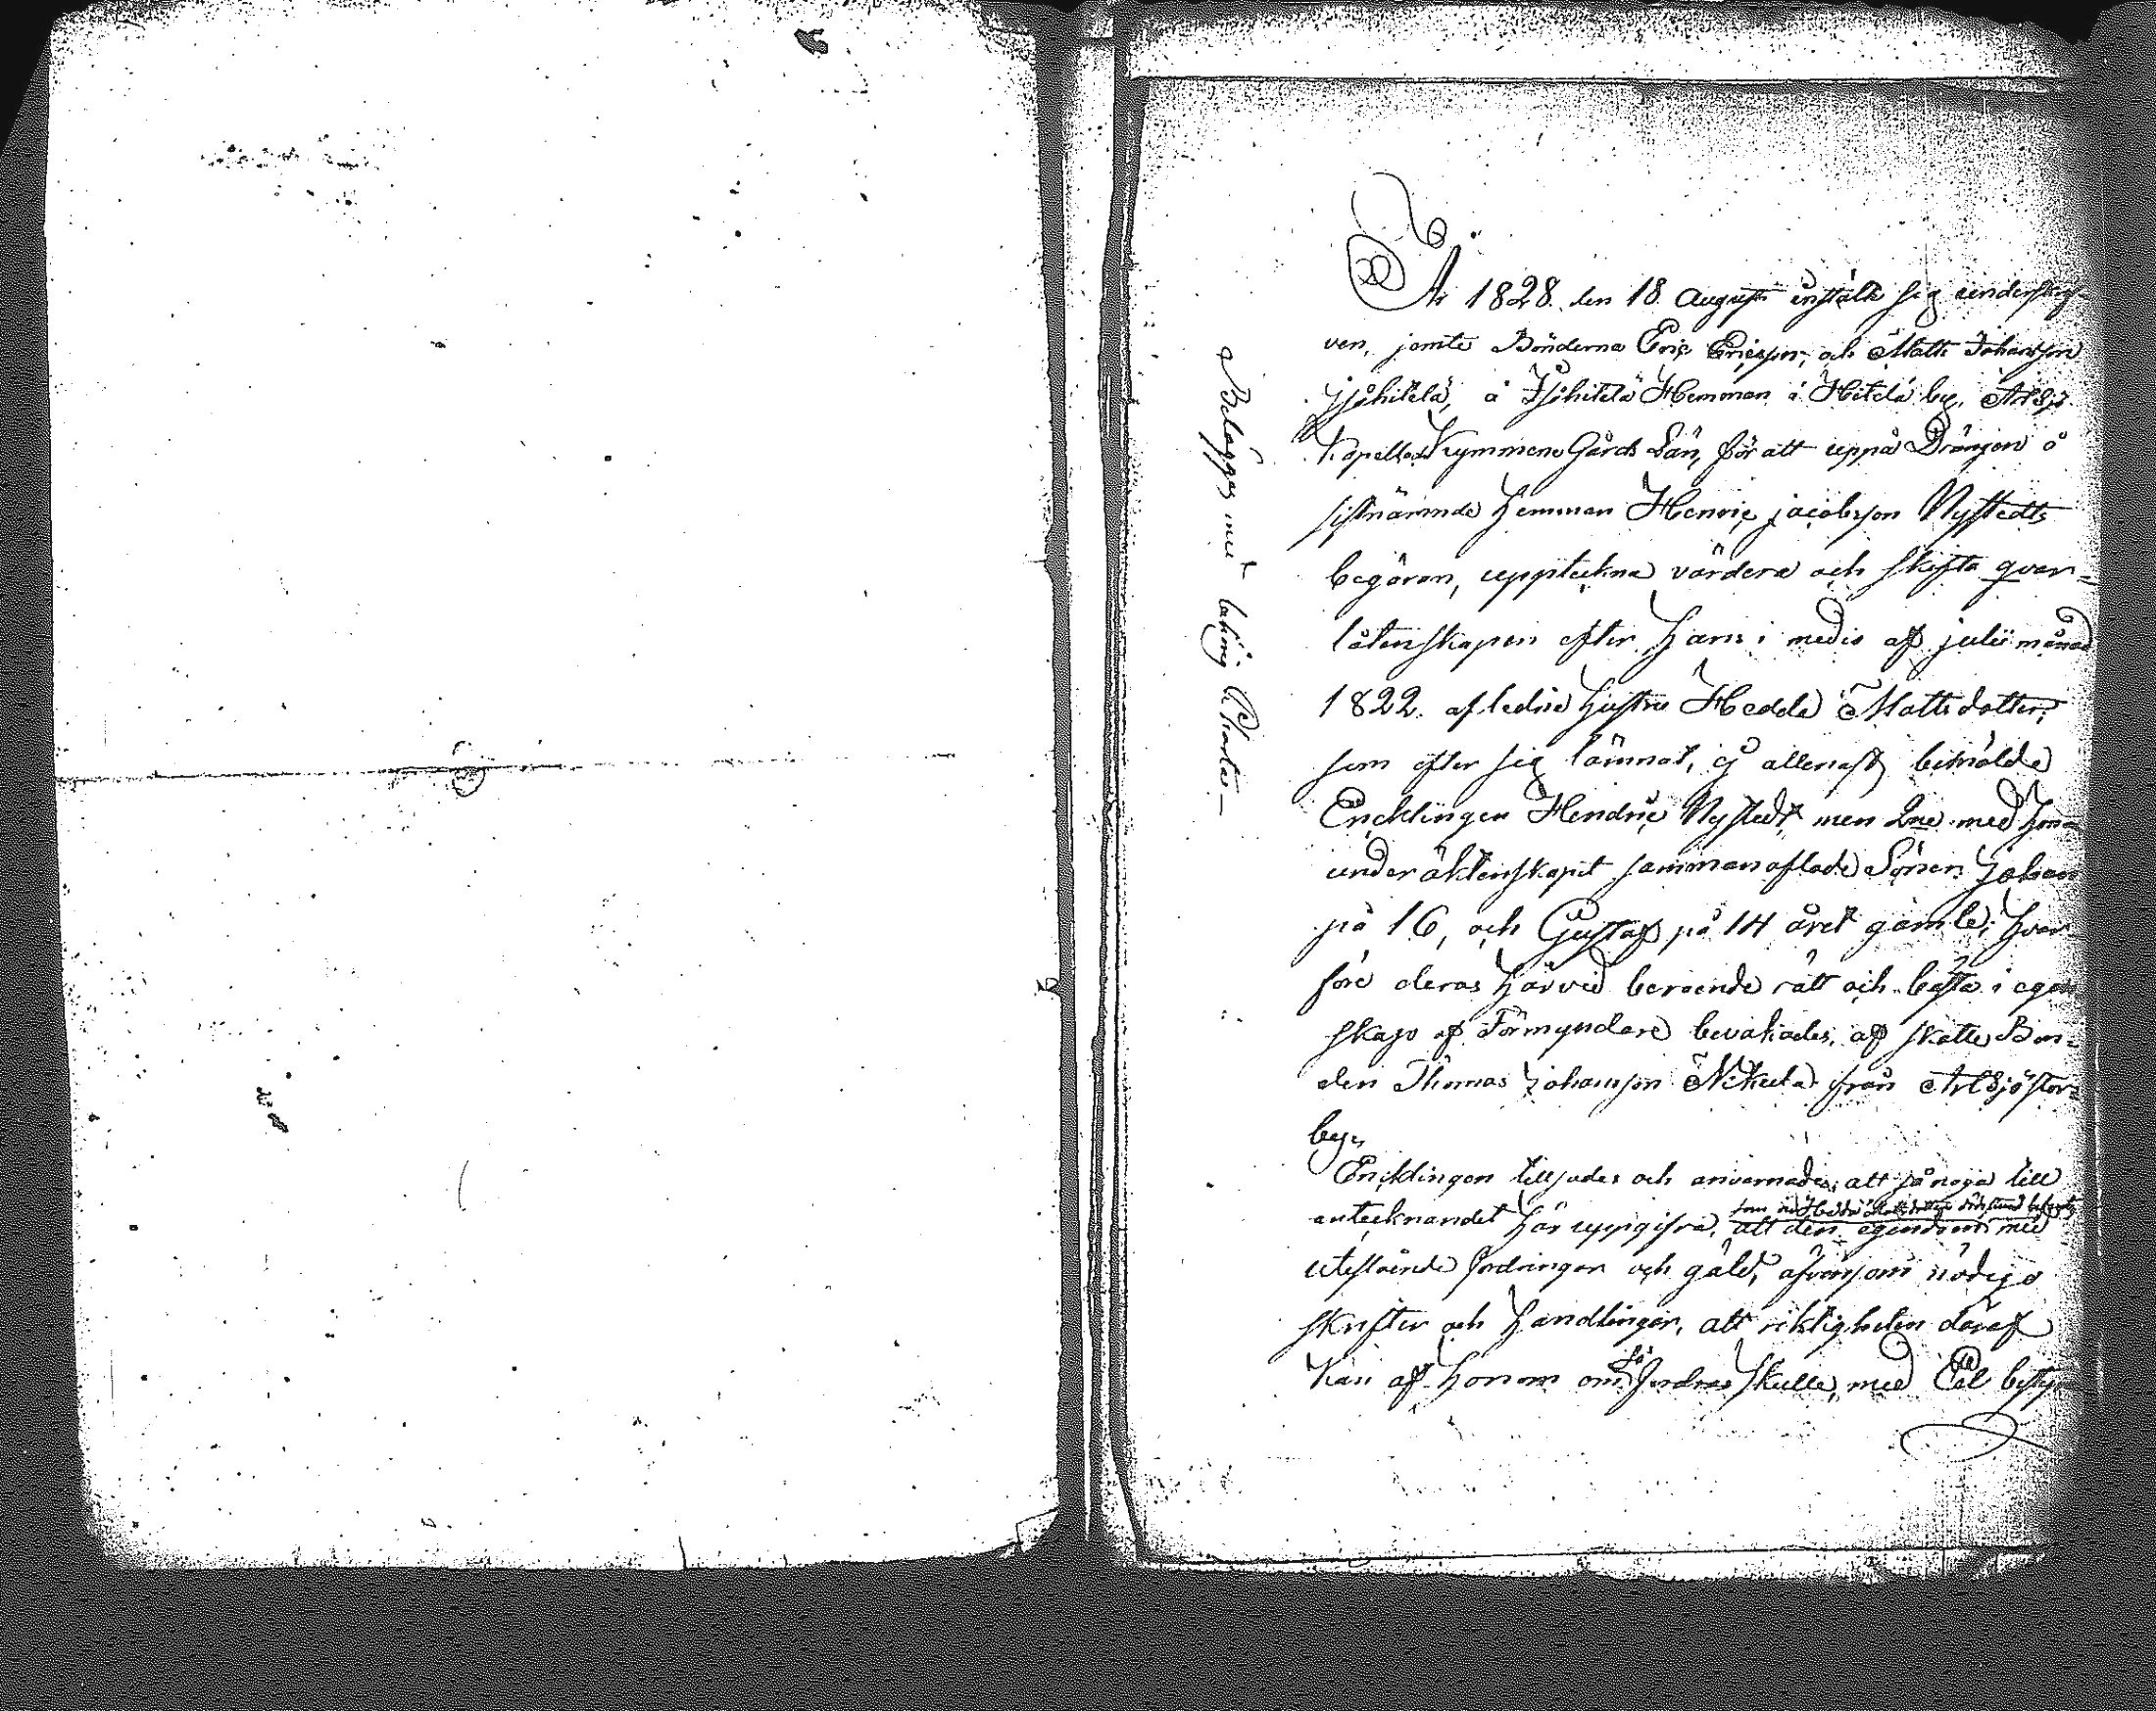 År 1828. den 18 Augusti instälte sig underskref-
ven, jemte Bönderne Eric Ericsson, och Matts Johansson
Isohitelä, å Isohitelä Hemman i Hitelä by, Artsjö
Kapell och Kymmene Gårds Län, för att uppå Drängen å
sistnämnde Hemman Henric Jacobsson Nystedts
begäran, uppteckna värdera och skifta qvar-
låtenskapen efter Hans i medio af julii månad
1822. afledne Hustru Hedda Mattsdotter,
som efter sig lämnat, ej allenast bemälde
Encklingen Hendric Nystedt, men 2ne med Hon-
under äktenskapet sammanaflade Söner Johan
på 16, och Gustaf på 14 året gamle, Hvar-
före deras Härvid beroende rätt och bästa i egen-
skap af Förmyndare bevakades, af skatte Bon-
den Thomas Johansson Nikula från Artsjö stor-
by,
Encklingen tillsades och anvarnades, att så noga till
som vid Hedda Mattsdotters död stund befants
antecknandet Här uppgifva, att den egendom med
utestående fordringar och gäld, äfvensom nödiga
skrifter och Handlingar, att riktigheten däraf
Kan af Honom om så fordras skulle, med Ed besty-
Belägges med behörig Charta